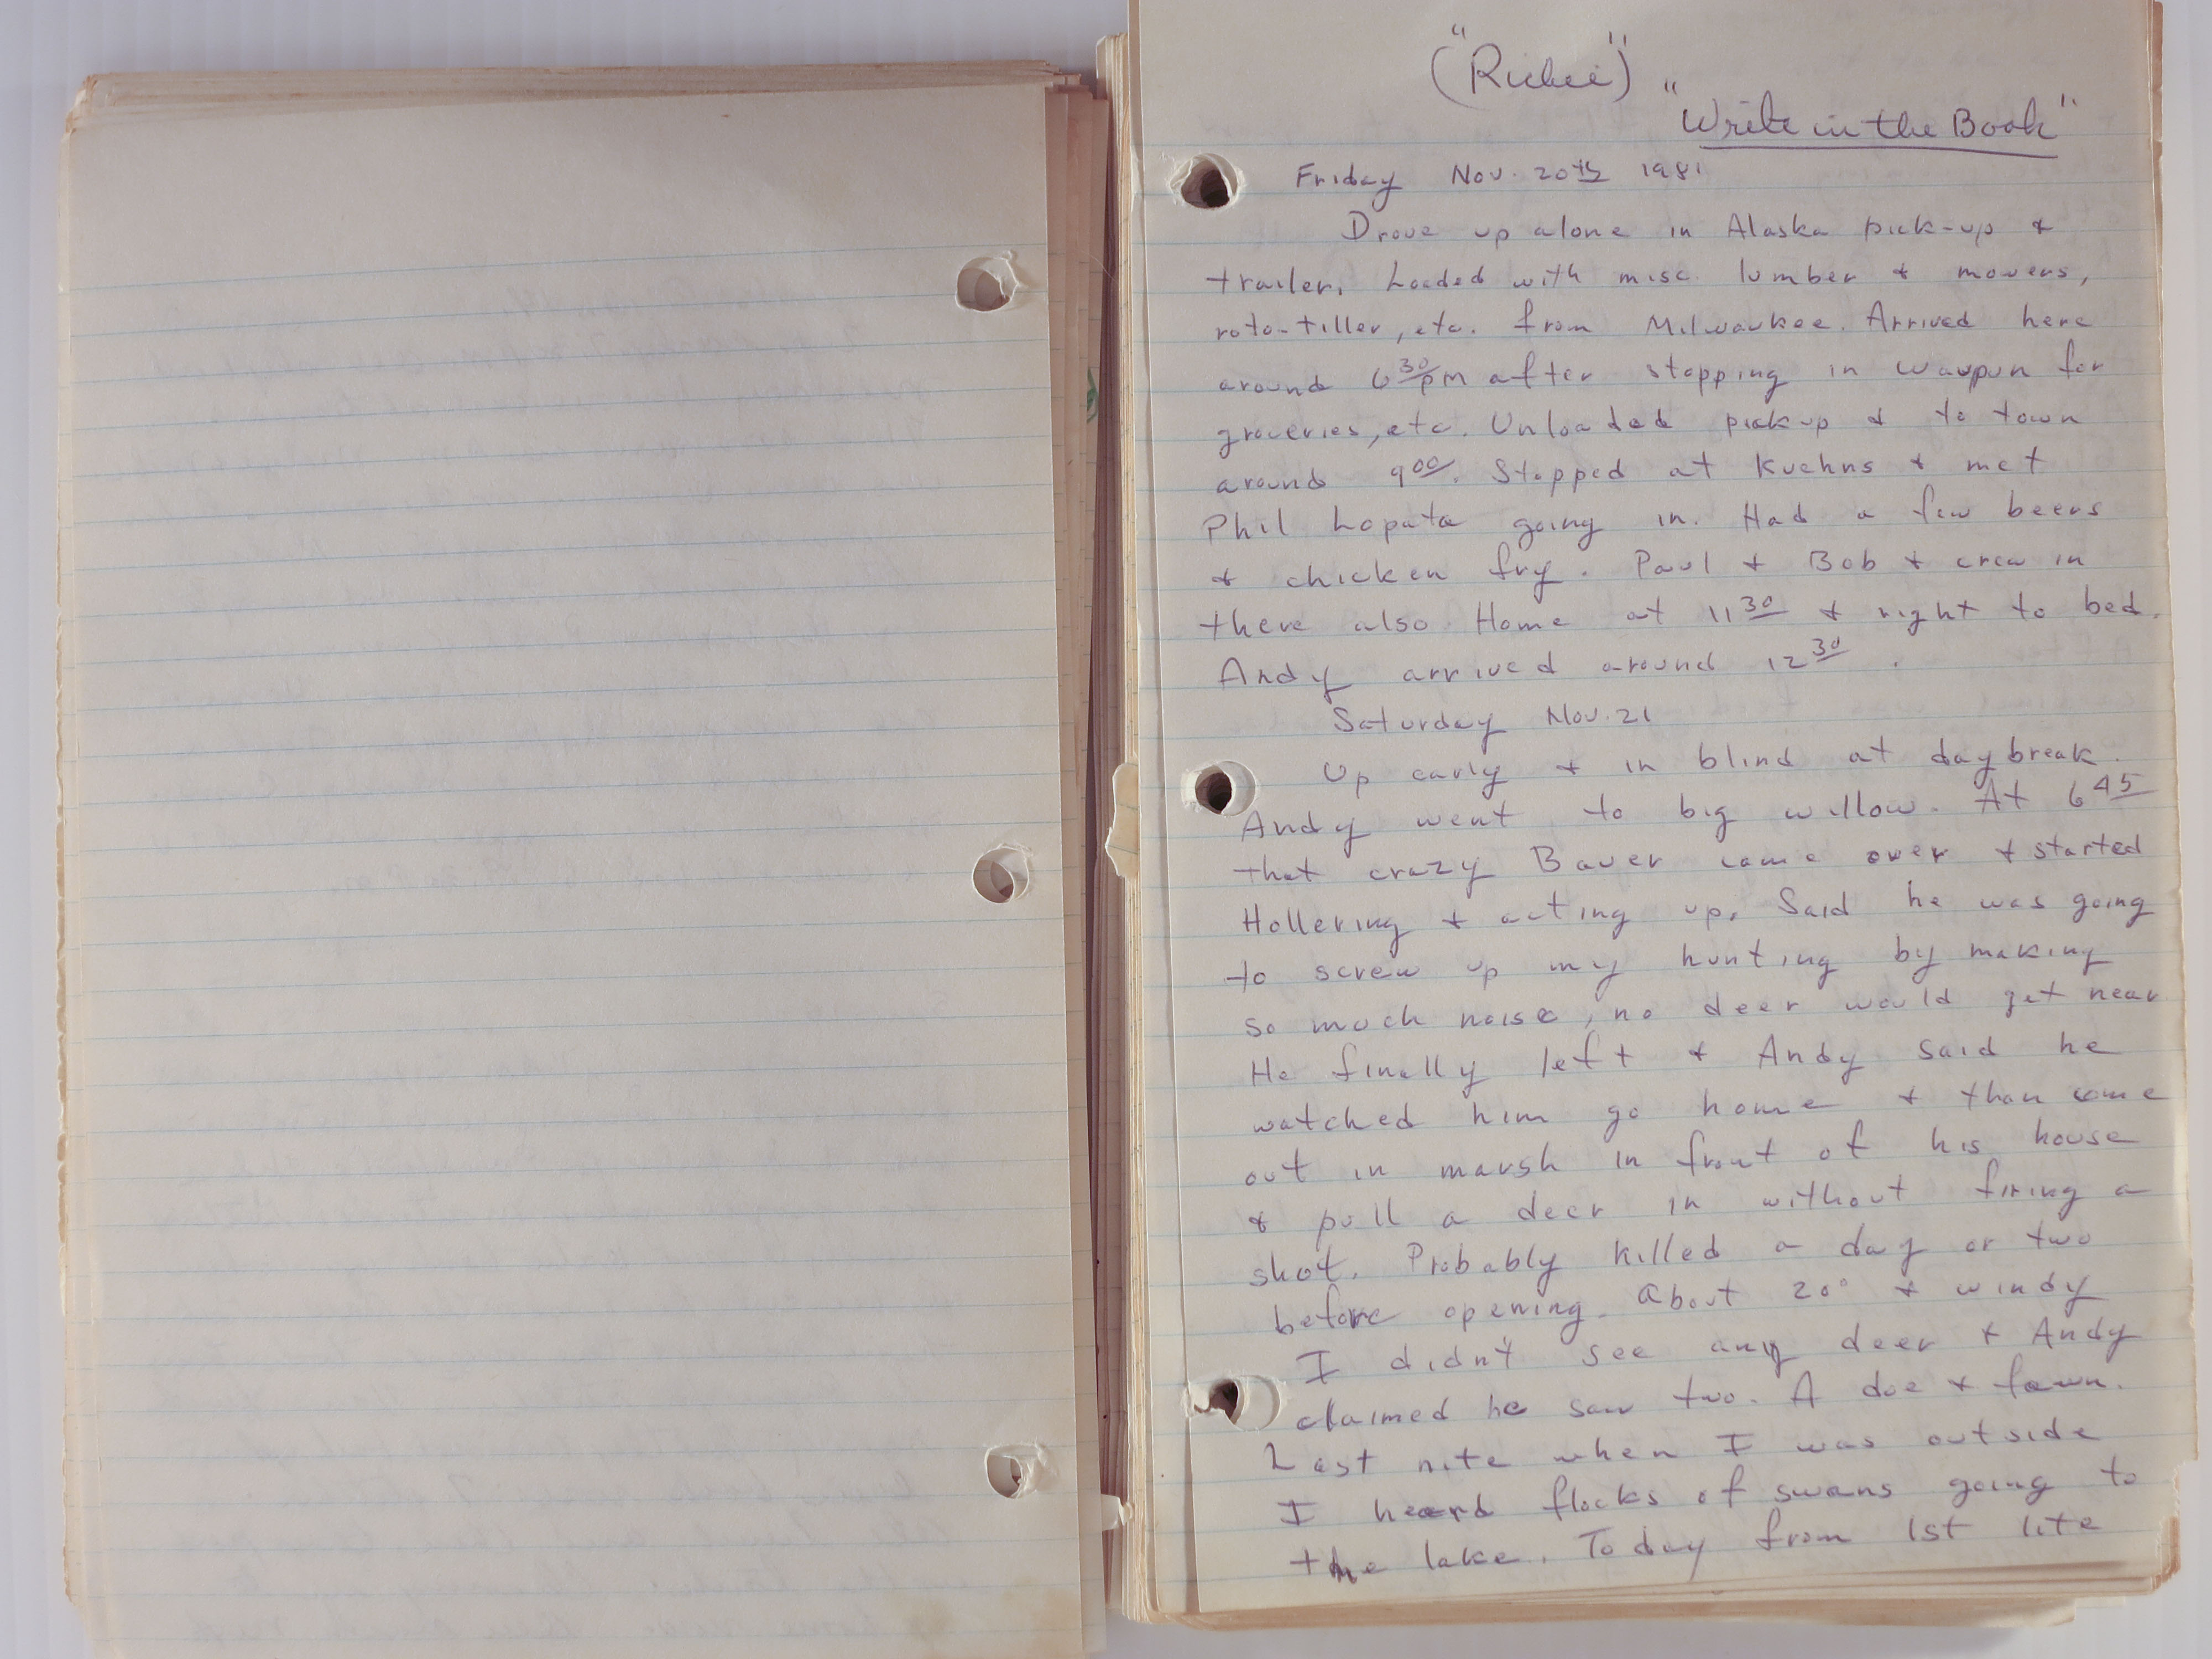 ("Richie")
"Write in the Book"
Friday Nov. 20th 1981
Drove up alone in Alaska pick-up &
trailer. Loaded with misc. lumber & mowers,
roto-tiller, etc. from Milwaukee. Arrived here
around 6 30 pm after stopping in Waupun for
groceries, etc. Unloaded pick-up & to town
around 9 00. Stopped at Kuehns & met
Phil Lopata going in. Had a few beers
& chicken fry. Paul & Bob & crew in
there also. Home at 11 30 & right to bed.
Andy arrived around 12 30.
Saturday Nov. 21
Up early & in blind at daybreak.
Andy went to big willow. At 6 45
that crazy Bauer came over & started
Hollering & acting up. Said he was going
to screw up my hunting by making
so much noise, no deer would get near
He finally left & Andy said he
watched him go home & than come
out in marsh in front of his house
& pull a deer in without firing a
shot. Probably killed a day or two
before opening. About 20° & windy
I didn't see any deer & Andy
claimed he saw two. A doe & fawn.
Last nite when I was outside
I heard flocks of swans going to
the lake. Today from 1st lite